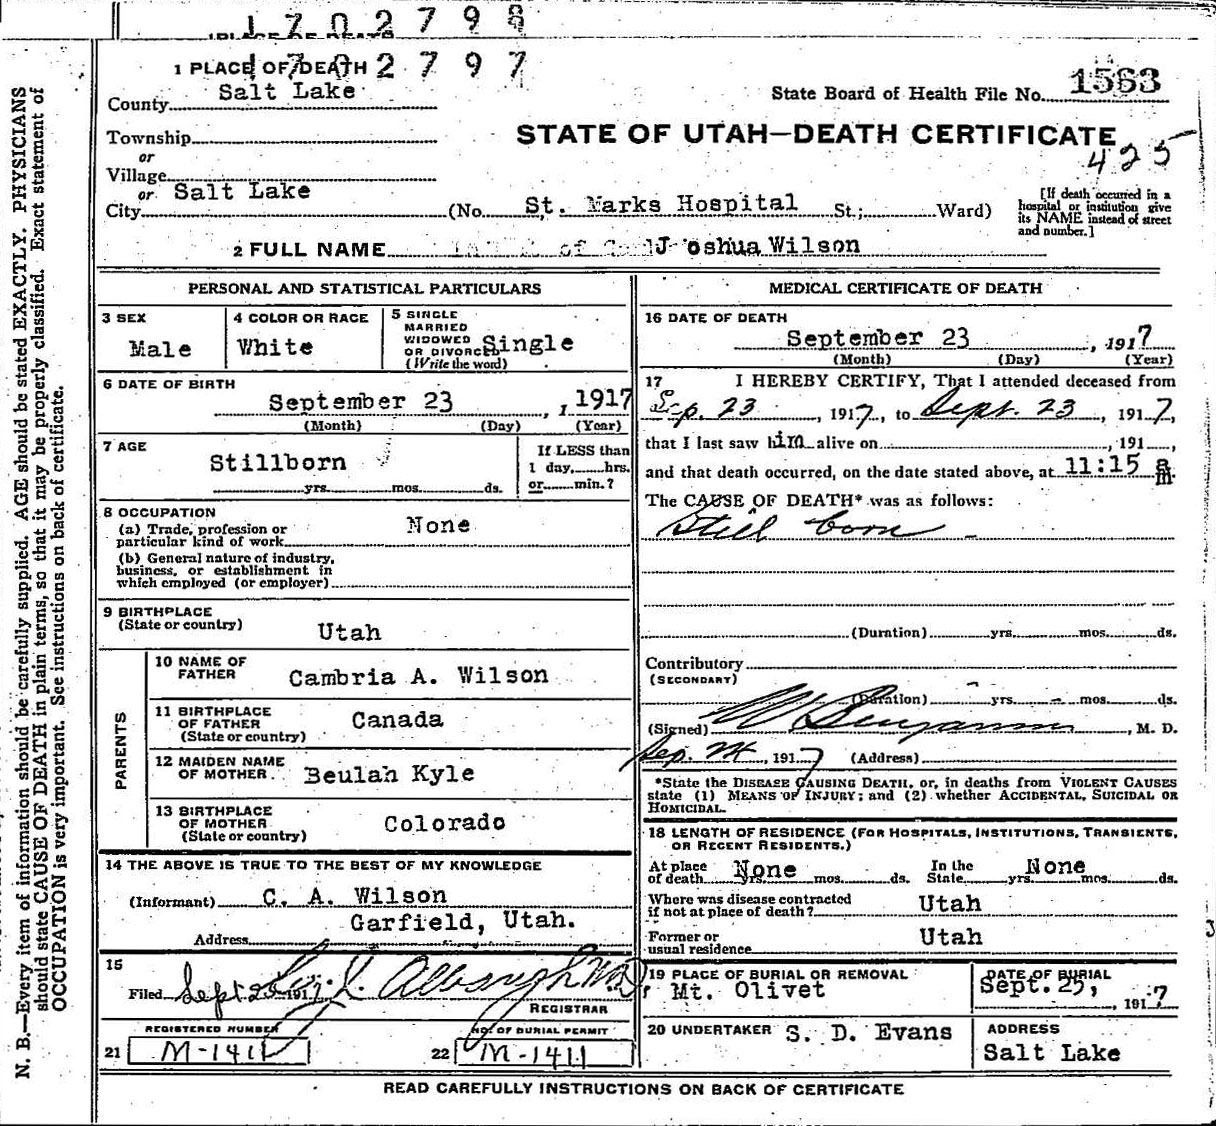 1 7 0 2 7 9 8
1 7 0 2 7 9 7
1 PLACE OF DEATH
County Salt Lake
State Board of Health File No. 1563
Township
STATE OF UTAH—DEATH CERTIFICATE
425
or
Village
or
City Salt Lake (No. St. Marks Hospital St.; Ward)
[If death occurred in a hospital or institution give its NAME instead of street and number.]
2 FULL NAME Joshua Wilson
PERSONAL AND STATISTICAL PARTICULARS
3 SEX
Male
4 COLOR OR RACE
White
5 SINGLE
MARRIED
WIDOWED
OR DIVORCED Single
(Write the word)
6 DATE OF BIRTH
September 23, 1 1917
(Month) (Day) (Year)
7 AGE
Stillborn
yrs. mos. ds.
If LESS than
1 day, hrs.
or min.?
8 OCCUPATION
(a) Trade, profession or
particular kind of work None
(b) General nature of industry,
business, or establishment in
which employed (or employer)
9 BIRTHPLACE
(State or country)
Utah
PARENTS
10 NAME OF
FATHER Cambria A. Wilson
11 BIRTHPLACE
OF FATHER
(State or country) Canada
12 MAIDEN NAME
OF MOTHER Beulah Kyle
13 BIRTHPLACE
OF MOTHER
(State or country) Colorado
14 THE ABOVE IS TRUE TO THE BEST OF MY KNOWLEDGE
(Informant) C. A. Wilson
Address Garfield, Utah.
15
Filed Sept 1917
REGISTRAR
REGISTERED NUMBER
21 M-1411
NO. OF BURIAL PERMIT
22 M-1411
MEDICAL CERTIFICATE OF DEATH
16 DATE OF DEATH
September 23, 1917
(Month) (Day) (Year)
17 I HEREBY CERTIFY, That I attended deceased from
Sep. 23, 1917, to Sept. 23, 1917,
that I last saw him alive on , 191 ,
and that death occurred, on the date stated above, at 11:15 a m.
The CAUSE OF DEATH* was as follows:
Still born
(Duration) yrs. mos. ds.
Contributory
(SECONDARY)
(Duration) yrs. mos. ds.
(Signed) Benjamin, M. D.
Sep. 24, 1917 (Address)
*State the DISEASE CAUSING DEATH, or, in deaths from VIOLENT CAUSES
state (1) MEANS OF INJURY; and (2) whether ACCIDENTAL, SUICIDAL OR
HOMICIDAL.
18 LENGTH OF RESIDENCE (FOR HOSPITALS, INSTITUTIONS, TRANSIENTS,
OR RECENT RESIDENTS.)
At place
of death None yrs. mos. ds. In the State None yrs. mos. ds.
Where was disease contracted
if not at place of death? Utah
Former or
usual residence Utah
19 PLACE OF BURIAL OR REMOVAL
Mt. Olivet
DATE OF BURIAL
Sept. 25, 1917
20 UNDERTAKER S. D. Evans
ADDRESS
Salt Lake
READ CAREFULLY INSTRUCTIONS ON BACK OF CERTIFICATE
N. B.—Every item of information should be carefully supplied. AGE should be stated EXACTLY. PHYSICIANS
should state CAUSE OF DEATH in plain terms, so that it may be properly classified. Exact statement of
OCCUPATION is very important. See instructions on back of certificate.